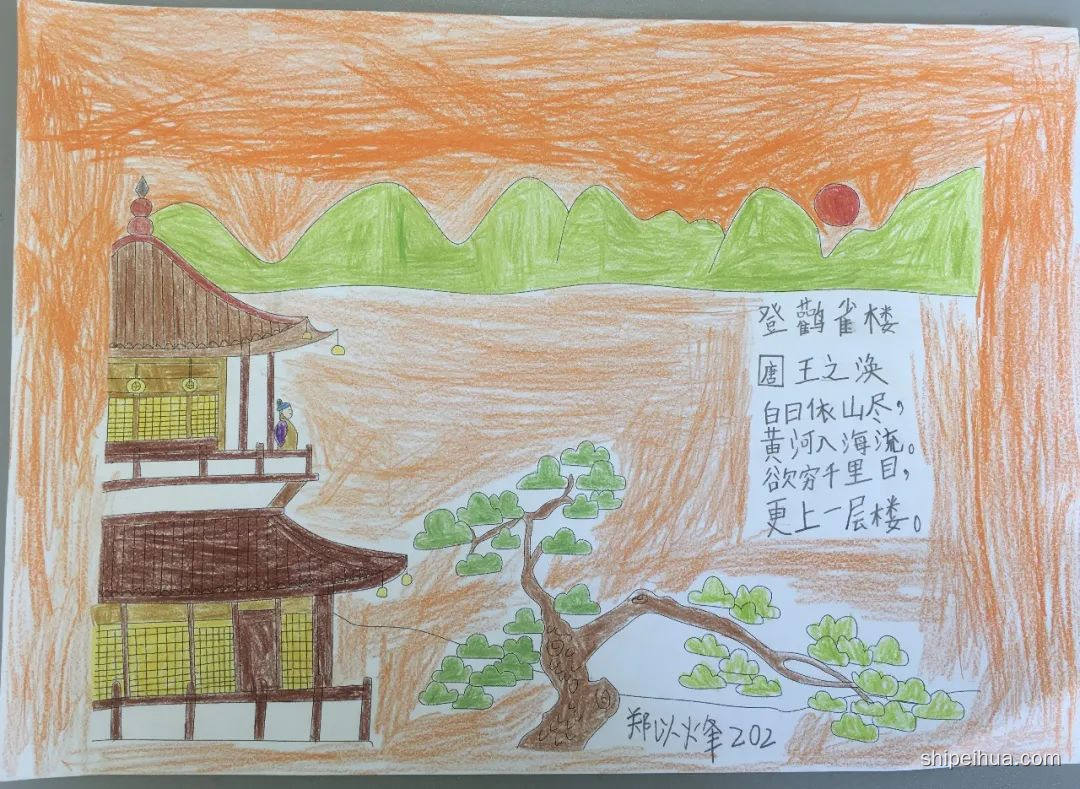 登鹳雀楼
唐 王之涣
白日依山尽，
黄河入海流。
欲穷千里目，
更上一层楼。
郑以烽202
shipeihua.com